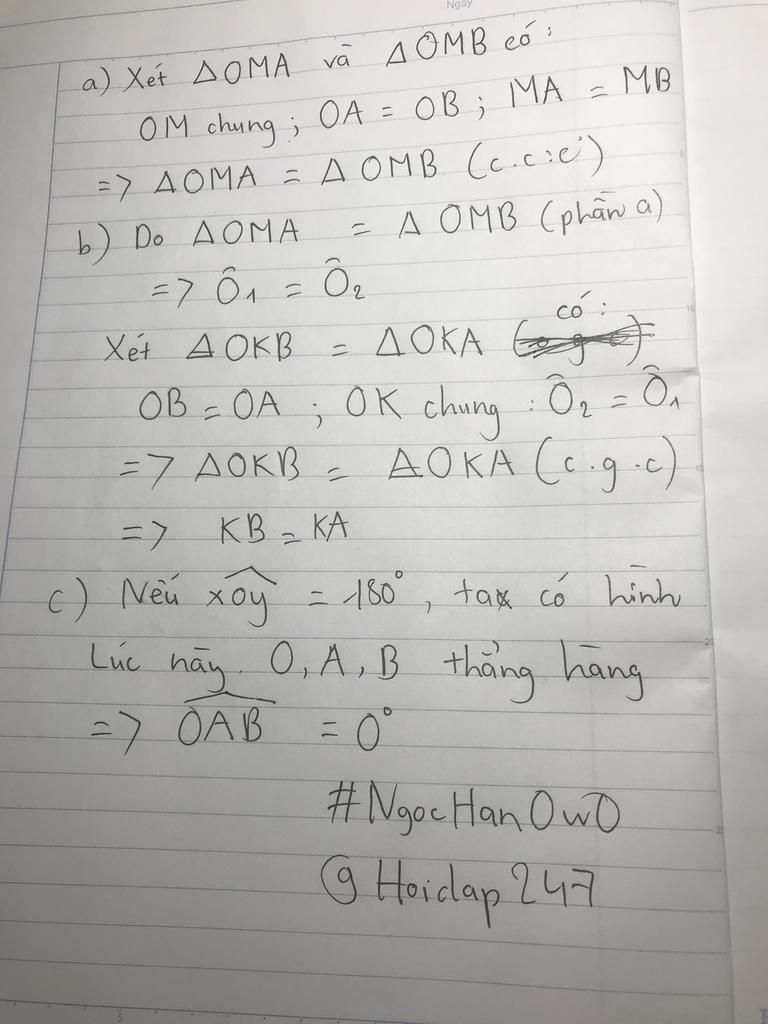 Ngày
a) Xét ΔOMA và ΔOMB có:
OM chung ; OA = OB ; MA = MB
=> ΔOMA = ΔOMB (c.c.c)
b) Do ΔOMA = ΔOMB (phần a)
=> Ô1 = Ô2
có:
Xét ΔOKB = ΔOKA
OB = OA ; OK chung : Ô2 = Ô1
=> ΔOKB = ΔOKA (c.g.c)
=> KB = KA
c) Nếu xOy = 180°, ta có hình
Lúc này O, A, B thẳng hàng
=> OAB = 0°
#NgocHanOwO
@Hoidap247